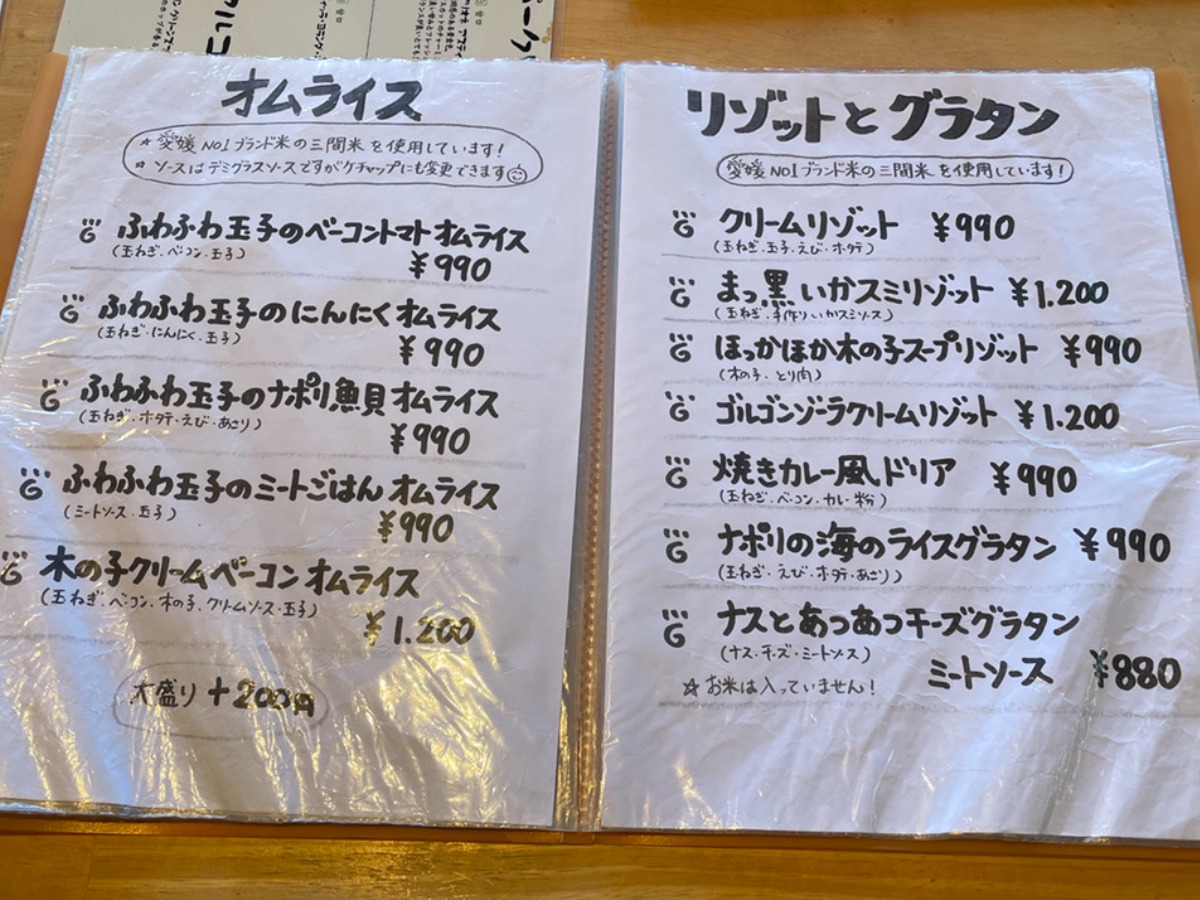 オムライス
☆愛媛NO1ブランド米の三間米を使用しています!
☆ソースはデミグラスソースですがケチャップにも変更できます
ふわふわ玉子のベーコントマトオムライス
(玉ねぎ・ベーコン・玉子)
¥990
ふわふわ玉子のにんにくオムライス
(玉ねぎ・にんにく・玉子)
¥990
ふわふわ玉子のナポリ魚貝オムライス
(玉ねぎ・ホタテ・えび・あさり)
¥990
ふわふわ玉子のミートごはんオムライス
(ミートソース・玉子)
¥990
木の子クリームベーコンオムライス
(玉ねぎ・ベーコン・木の子・クリームソース・玉子)
¥1.200
大盛り+200円
リゾットとグラタン
愛媛NO1ブランド米の三間米を使用しています!
クリームリゾット ¥990
(玉ねぎ・玉子・えび・ホタテ)
まっ黒いかスミリゾット ¥1.200
(玉ねぎ・手作りいかスミソース)
ほっかほか木の子スープリゾット ¥990
(木の子・とり肉)
ゴルゴンゾーラクリームリゾット ¥1.200
焼きカレー風ドリア ¥990
(玉ねぎ・ベーコン・カレー粉)
ナポリの海のライスグラタン ¥990
(玉ねぎ・えび・ホタテ・あさり)
ナスとあつあつチーズグラタン
(ナス・チーズ・ミートソース)
ミートソース ¥880
☆お米は入っていません!